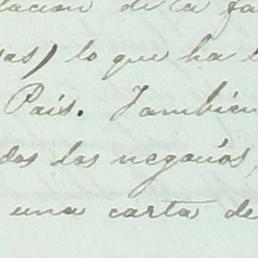 lacion de la fa
sas) lo que ha
Pais. Tambien
dos los negocios,
una carta de